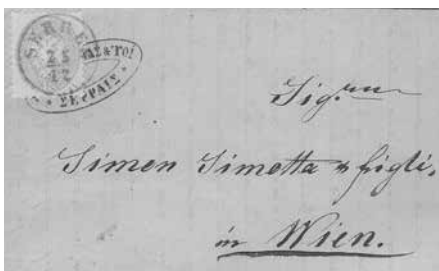 SERRES
25
12
ΣΕΡΡΑΙΣ
Sig.rn
Simon Simotta & figli,
in Wien.